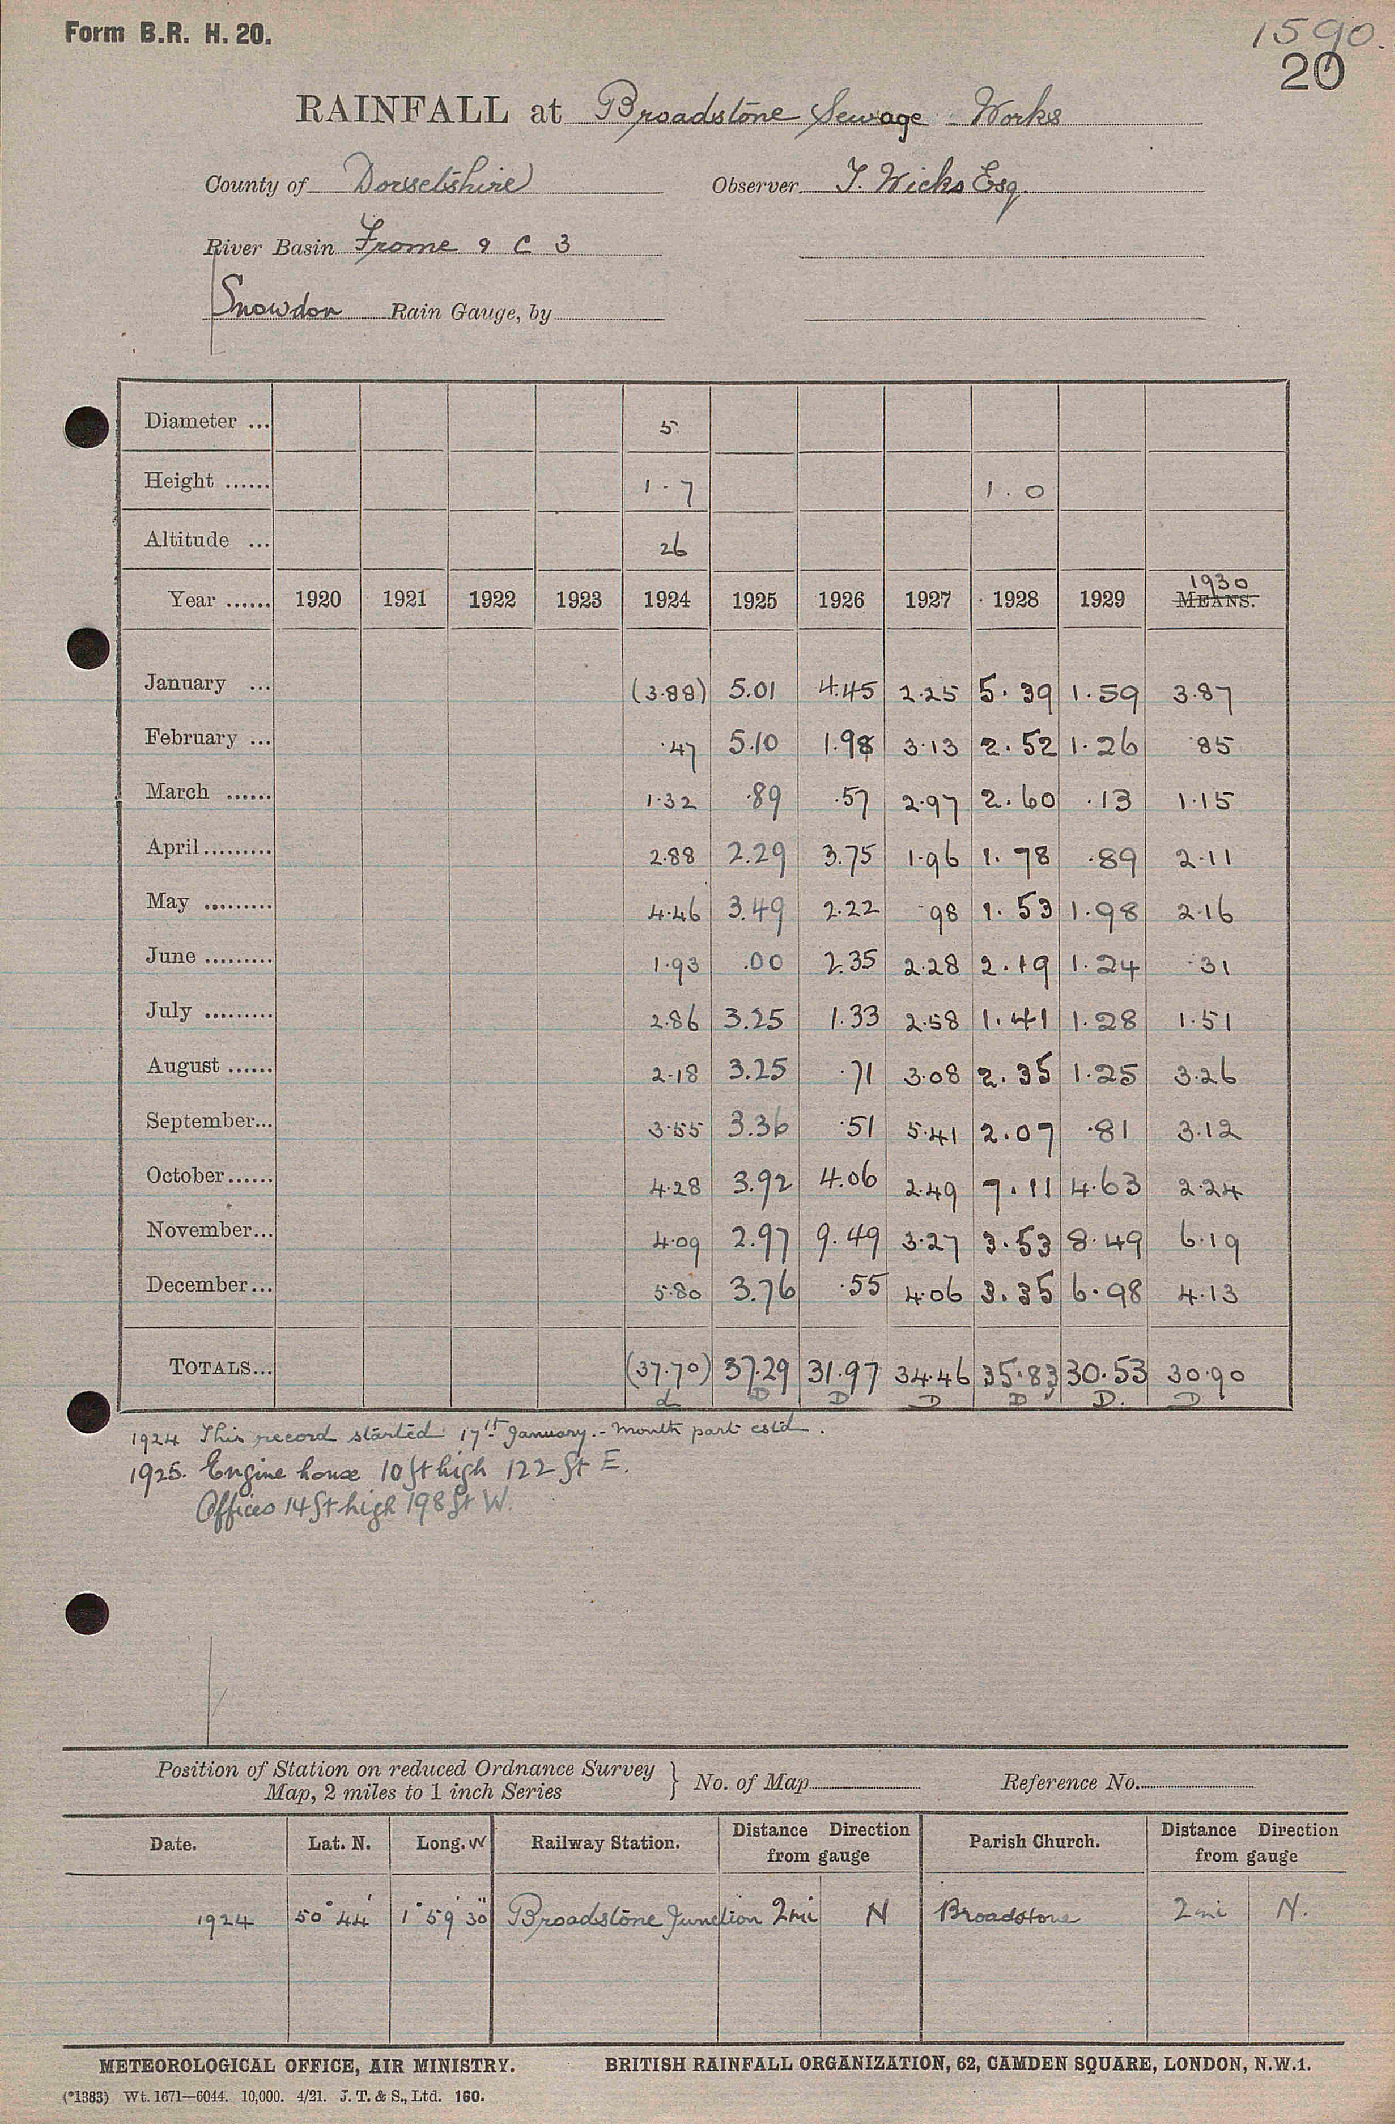 Form B.R. H. 20.
1590.
20
RAINFALL at Broadstone Sewage Works
County of Dorsetshire Observer T. Wicks Esq.
River Basin Frome 9 C 3
Snowdon Rain Gauge, by
Diameter ... 5
Height ...... 1.7 1.0
Altitude ... 26
Year ...... 1920 1921 1922 1923 1924 1925 1926 1927 1928 1929 1930 MEANS.
January ... (3.88) 5.01 4.45 2.25 5.39 1.59 3.87
February ... .47 5.10 1.98 3.13 2.52 1.26 .85
March ...... 1.32 .89 .57 2.97 2.60 .13 1.15
April......... 2.88 2.29 3.75 1.96 1.78 .89 2.11
May ......... 4.46 3.49 2.22 .98 1.53 1.98 2.16
June ......... 1.93 .00 2.35 2.28 2.19 1.24 .31
July ......... 2.86 3.25 1.33 2.58 1.41 1.28 1.51
August ...... 2.18 3.25 .71 3.08 2.35 1.25 3.26
September... 3.55 3.36 .51 5.41 2.07 .81 3.12
October...... 4.28 3.92 4.06 2.49 7.11 4.63 2.24
November... 4.09 2.97 9.49 3.27 3.53 8.49 6.19
December... 5.80 3.76 .55 4.06 3.35 6.98 4.13
TOTALS... (37.70) 37.29 31.97 34.46 35.83 30.53 30.90
d D D D D D. D
1924 This record started 17th January. - Month part est'd.
1925. Engine house 10 ft high 122 ft E.
Offices 14 ft high 198 ft W.
Position of Station on reduced Ordnance Survey
Map, 2 miles to 1 inch Series } No. of Map Reference No.
Date. Lat. N. Long. W Railway Station. Distance Direction from gauge Parish Church. Distance Direction from gauge
1924 50° 44' 1° 59' 30" Broadstone Junction 2 mi N Broadstone 2 mi N.
METEOROLOGICAL OFFICE, AIR MINISTRY. BRITISH RAINFALL ORGANIZATION, 62, CAMDEN SQUARE, LONDON, N.W.1.
(*1383) Wt. 1671—6044. 10,000. 4/21. J. T. & S., Ltd. 160.